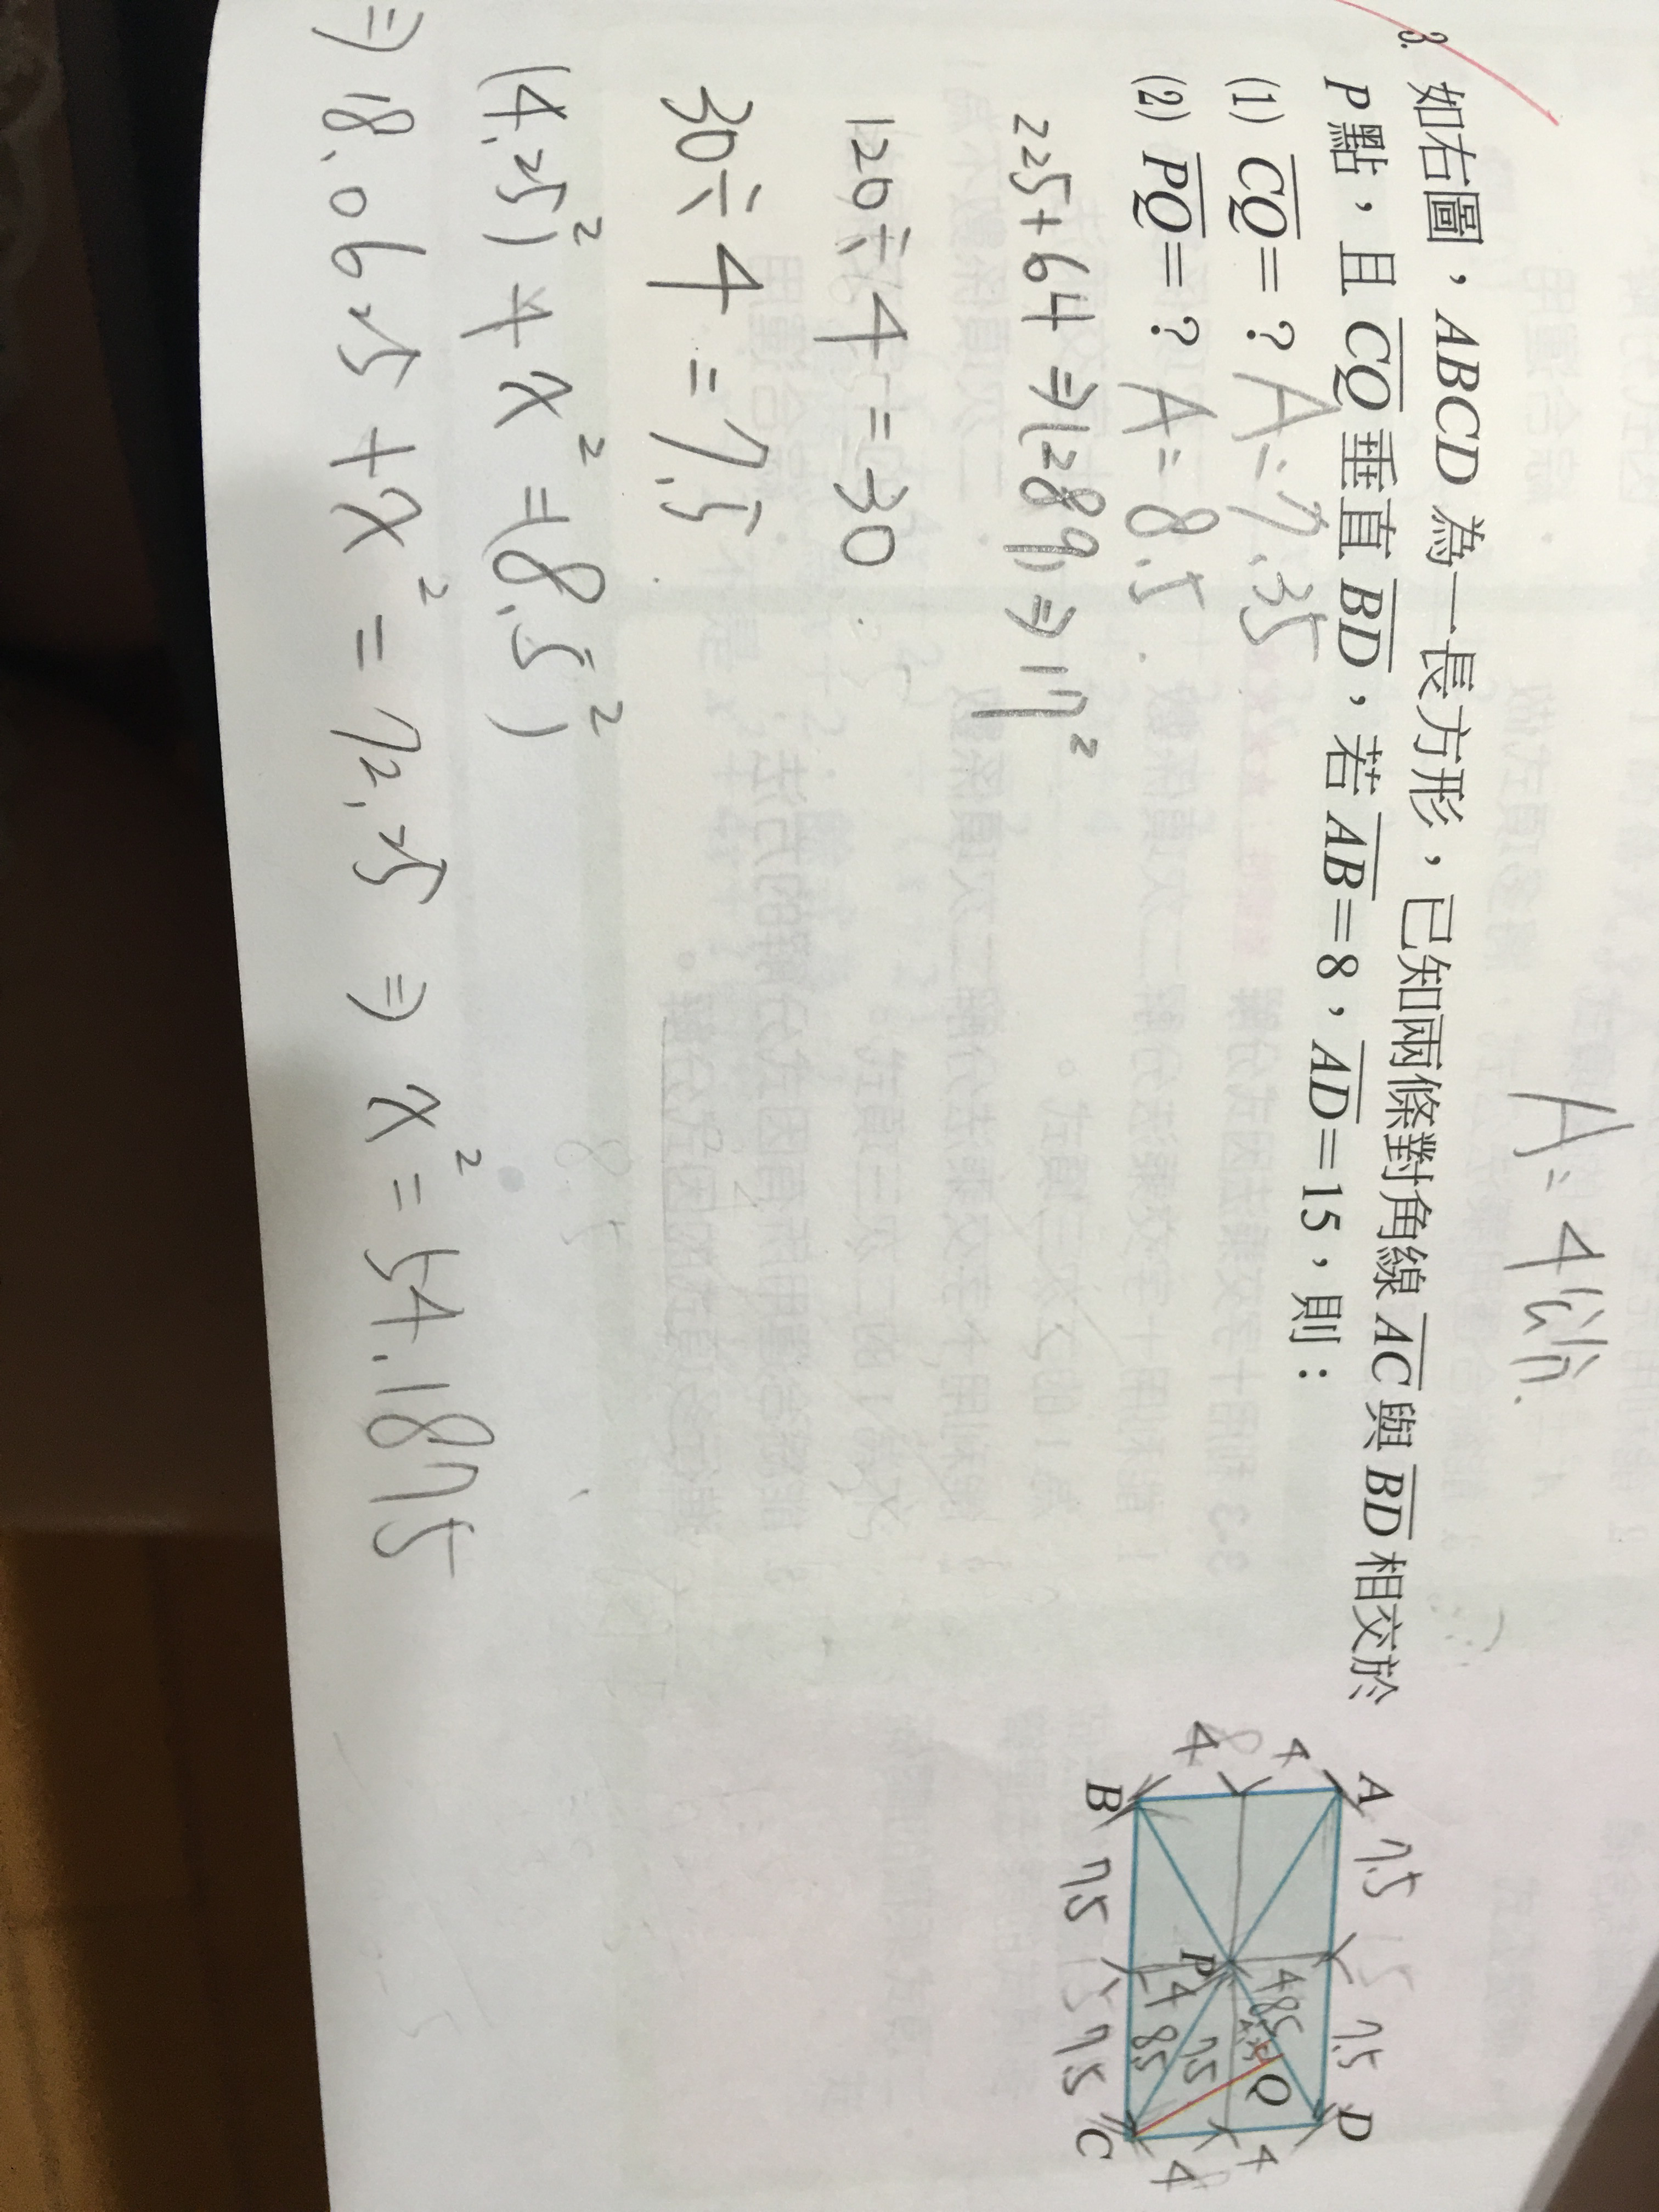 A=4倍
3. 如右圖，ABCD 為一長方形，已知兩條對角線 AC 與 BD 相交於
P 點，且 CQ 垂直 BD，若 AB=8，AD=15，則：
(1) CQ=？ A=7.35
(2) PQ=？ A=8.5
225+64⇒(289)⇒17²
120÷4=30
30÷4=7.5
(4.25)²+x²=(8.5²)
⇒18.0625+x²=72.25⇒x²=54.1875
A 7.5 15 7.5 D
4 4 8.5 Q 4
8
P 7.5
4 4 8.5 4
B 7.5 15 7.5 C